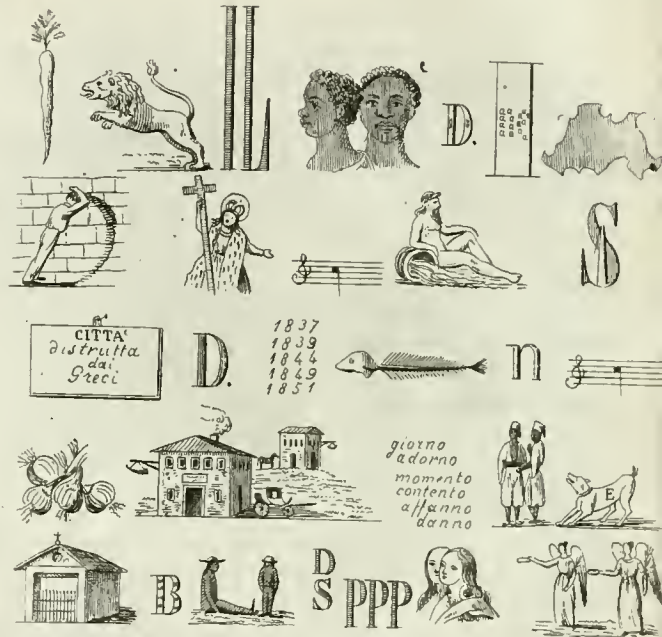 D.
S
CITTA'
distrutta
dai
Greci
D.
1837
1839
1844
1849
1851
n
giorno
adorno
momento
contento
affanno
danno
E
B
D
S
PPP